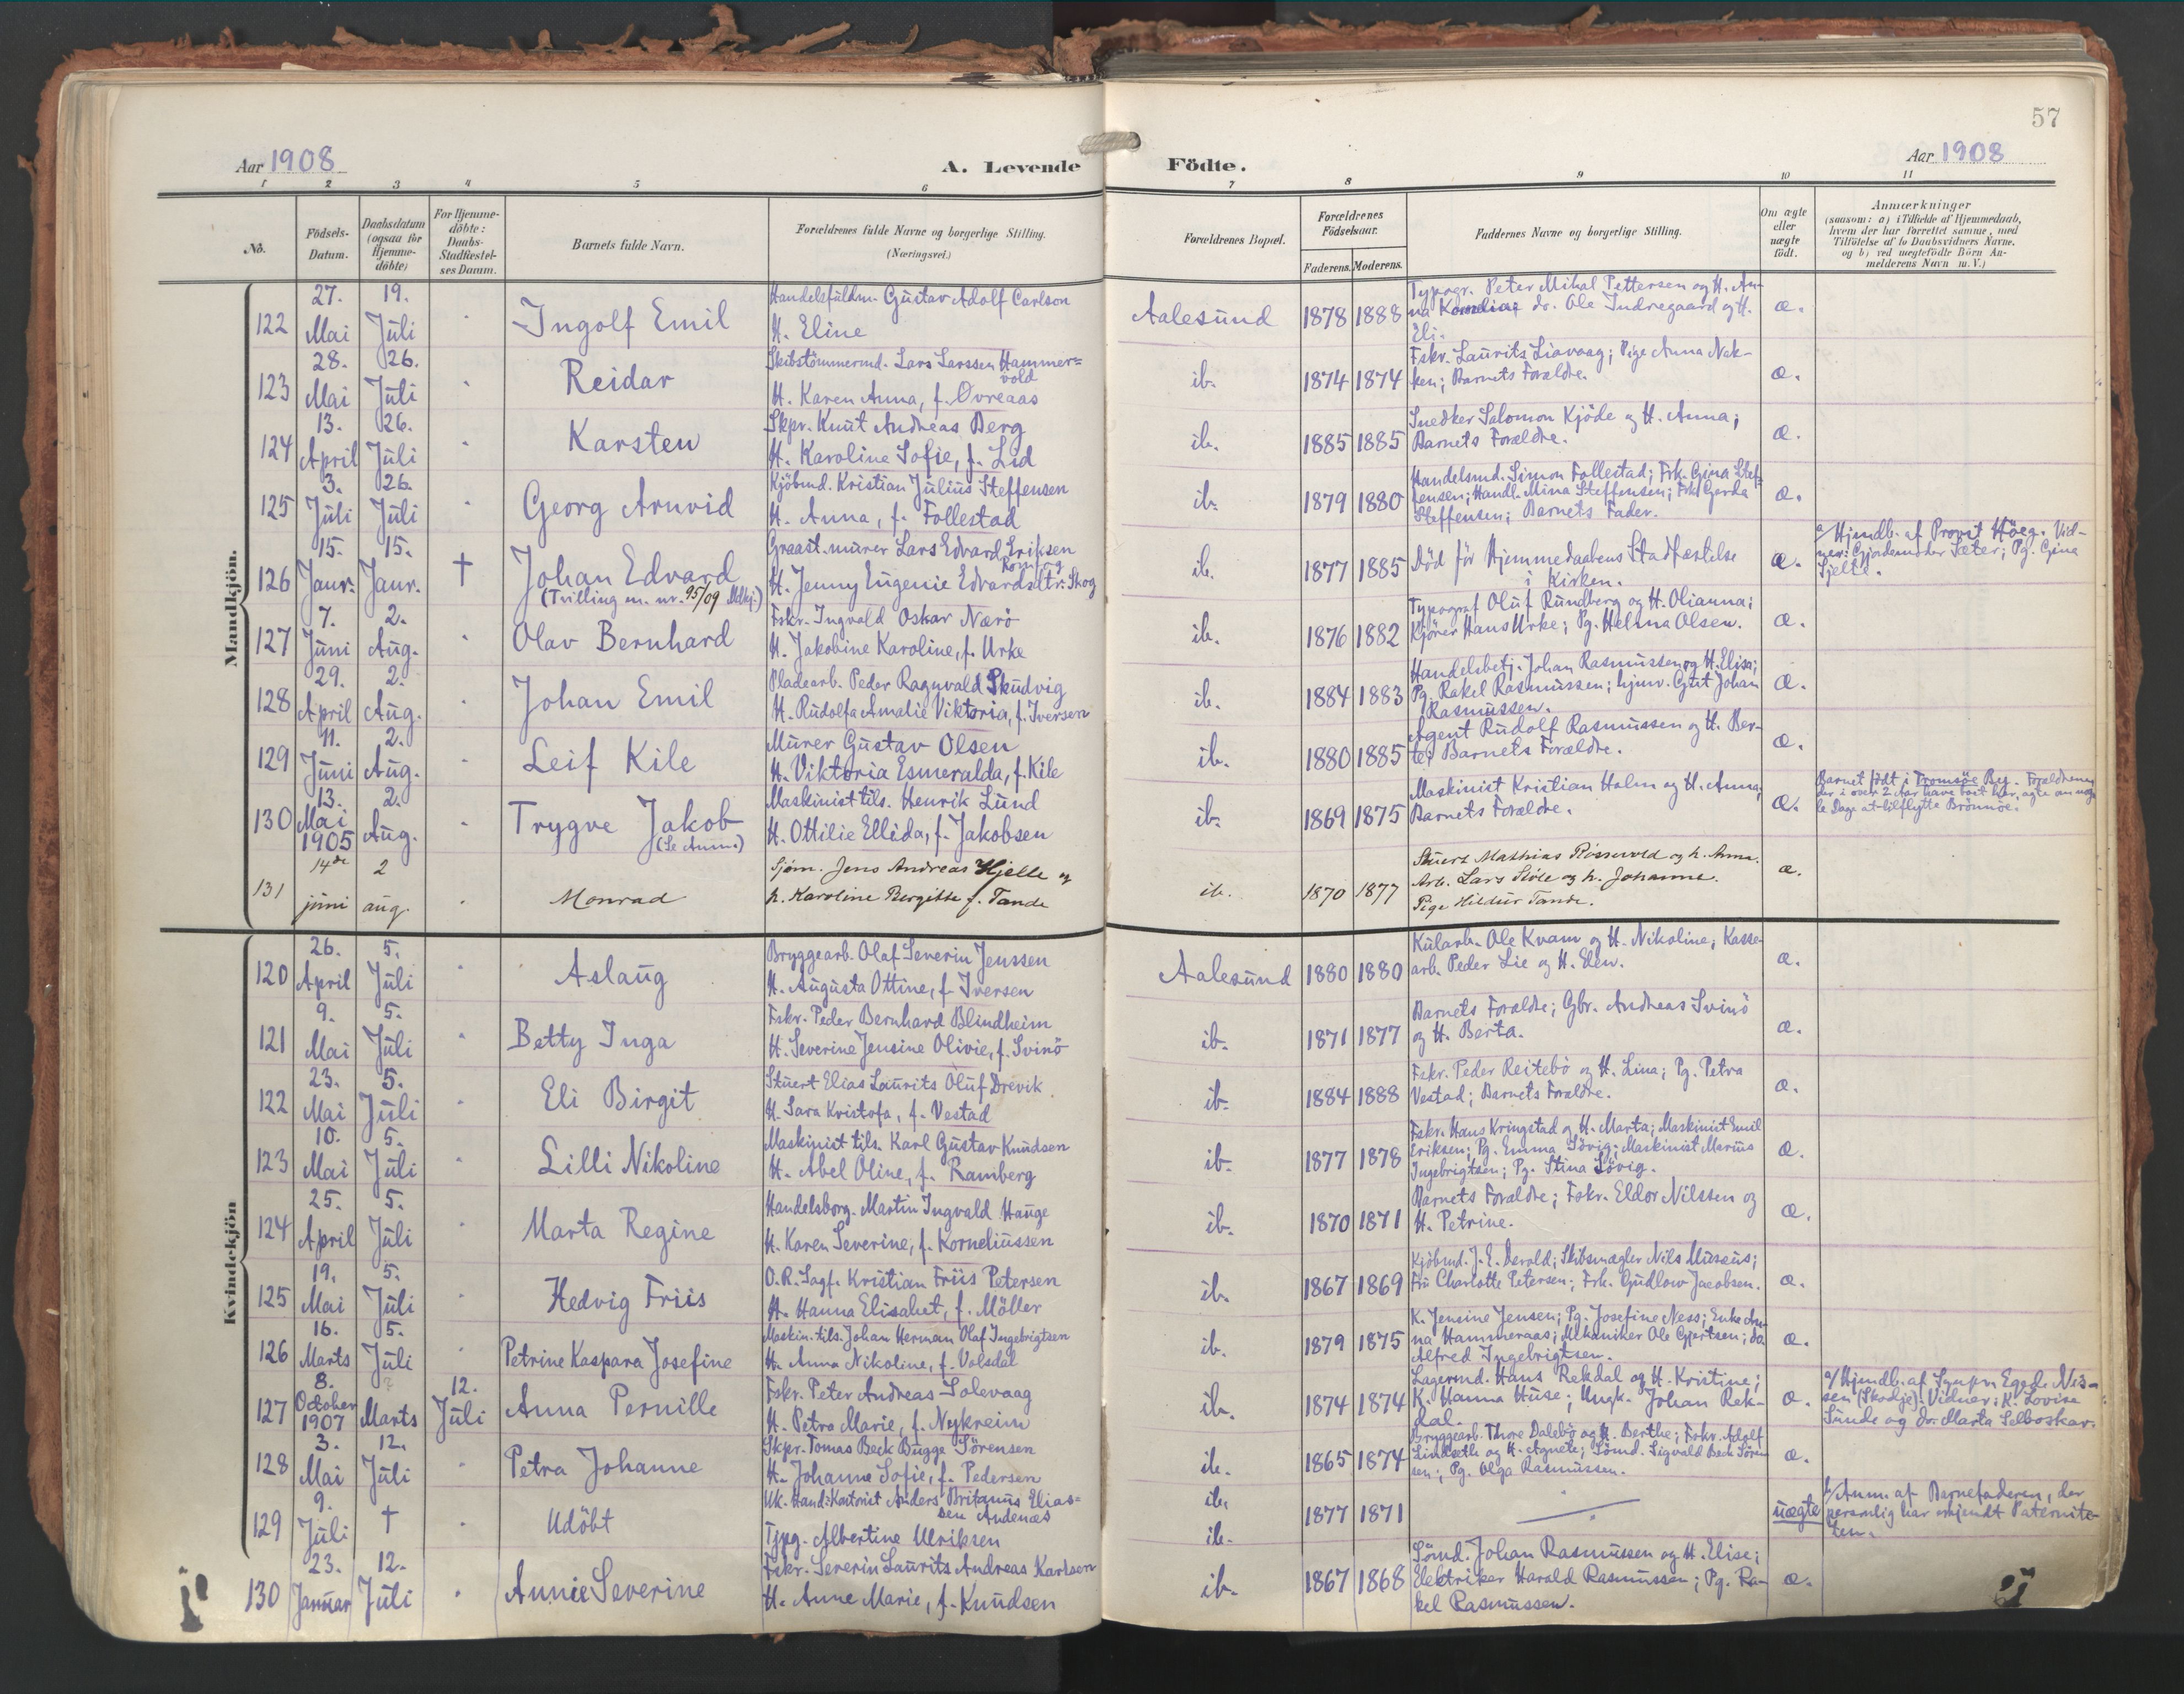 57
Aar 1908
A. Levende Födte.
Aar 1908
1 2 3 4 5 6 7 8 9 10 11
No.
Födsels-Datum.
Daabsdatum (ogsaa for Hjemme-döbte)
For Hjemme-döbte: Daabs-Stadfæstel-ses Datum.
Barnets fulde Navn.
Forældrenes fulde Navne og borgerlige Stilling. (Næringsvei.)
Forældrenes Bopæl.
Forældrenes Födselsaar.
Faderens. Moderens.
Faddernes Navne og borgerlige Stilling.
Om ægte eller uægte födt.
Anmærkninger
(saasom: a) i Tilfælde af Hjemmedaab,
hvem der har forrettet samme, med
Tilföielse af to Daabsvidners Navne,
og b) ved uægtefödte Börn An-
melderens Navn m. V.)
Mandkjön.
122
27. Mai
19. Juli
Ingolf Emil
Handelsfuldm. Gustav Adolf Carlson
H. Eline
Aalesund
1878 1888
Typogr. Peter Mikal Pettersen og H. An-
na; do. Ole Indregaard og H.
Eli.
æ.
123
28. Mai
26. Juli
Reidar
Skibstömmermd. Lars Larssen Hammer=
vold
H. Karen Anna, f. Ovreaas
ib.
1874 1874
Fskr. Laurits Liavaag; Pige Anna Nak-
ken; Barnets Forældre.
æ.
124
13. April
26. Juli
Karsten
Skpr. Knut Andreas Berg
H. Karoline Sofie, f. Lid
ib.
1885 1885
Snedker Salomon Kjöde og H. Anna;
Barnets Forældre.
æ.
125
3. Juli
26. Juli
Georg Arnvid
Kjöbmd. Kristian Julius Steffensen
H. Anna, f. Follestad
ib.
1879 1880
Handelsmd. Simon Follestad; Frk. Gina Stef-
fensen; Handl. Mina Steffensen; Frk. Gerda
Steffensen; Barnets Fader.
æ.
126
15. Janr.
15. Janr.
†
Johan Edvard
(Tvilling m. nr. 95/09 Mdkj.)
Graast.murer Lars Edvard Eriksen
H. Jenny Eugenie Edvardsdtr. Skog
ib.
1877 1885
Död för Hjemmedaabens Stadfæstelse
i Kirken.
æ.
a/ Hjmdb. af Provst Höeg. Vid-
ner: Gjordemoder Sæter; Pg. Gina
Gjelte.
127
7. Juni
2. Aug.
Olav Bernhard
Fskr. Ingvald Oskar Nærö
H. Jakobine Karoline, f. Urke
ib.
1876 1882
Typograf Oluf Rundberg og H. Olianna;
Kjörer Hans Urke; Pg. Helena Olsen.
æ.
128
29. April
2. Aug.
Johan Emil
Pladearb. Peder Ragnvald Skudvig
H. Rudolfa Amalie Viktoria, f. Iversen
ib.
1884 1883
Handelsbetj. Johan Rasmussen og H. Elisa;
Pg. Rakel Rasmussen; hjmv. Gut Johan
Rasmussen.
æ.
129
11. Juni
2. Aug.
Leif Kile
Murer Gustav Olsen
H. Viktoria Esmeralda, f. Kile
ib.
1880 1885
Agent Rudolf Rasmussen og H. Ber-
te; Barnets Forældre.
æ.
130
13. Mai 1905
2. Aug.
Trygve Jakob
(Se Anm.)
Maskinist tils. Henrik Lund
H. Ottilie Ellida, f. Jakobsen
ib.
1869 1875
Maskinist Kristian Holm og H. Anna;
Barnets Forældre.
æ.
Barnet födt i Tromsöe By. Forældrene,
der i over 2 Aar have boet her, agte om nog-
le Dage at tilflytte Brönnöe.
131
14de juni
2 aug.
Monrad
Sjöm. Jens Andreas Hjelle og
h. Karoline Bergitte f. Tande
ib.
1870 1877
Stuert Mathias Rössevold og h. Anna.
Arb. Lars Stöle og h. Johanne.
Pige Hildur Tande.
æ.
Kvindekjön
120
26. April
5. Juli
Aslaug
Bryggearb. Olaf Severin Jenssen
H. Augusta Ottine, f. Iversen
Aalesund
1880 1880
Kularb. Ole Kvam og H. Nikoline; Kasse-
arb. Peder Lie og H. Elen.
æ.
121
9. Mai
5. Juli
Betty Inga
Fskr. Peder Bernhard Blindheim
H. Severine Jensine Olivie, f. Svinö
ib.
1871 1877
Barnets Forældre; Gbr. Andreas Svinö
og H. Berta.
æ.
122
23. Mai
5. Juli
Eli Birgit
Stuert Elias Laurits Oluf Drevik
H. Sara Kristofa, f. Vestad
ib.
1884 1888
Fskr. Peder Reitebö og H. Lina; Pg. Petra
Vestad; Barnets Forældre.
æ.
123
10. Mai
5. Juli
Lilli Nikoline
Maskinist tils. Karl Gustav Knudsen
H. Abel Oline, f. Ramberg
ib.
1877 1878
Fskr. Hans Kringstad og H. Marta; Maskinist Emil
Eriksen; Pg. Emma Lövig; Maskinist Marius
Ingebrigtsen; Pg. Stina Lövig.
æ.
124
25. April
5. Juli
Marta Regine
Handelsborg. Martin Ingvald Hauge
H. Karen Severine, f. Korneliussen
ib.
1870 1871
Barnets Forældre; Fskr. Eldor Nilssen og
H. Petrine.
æ.
125
19. Mai
5. Juli
Hedvig Friis
O.R. Sagf. Kristian Friis Petersen
H. Hanna Elisabet, f. Möller
ib.
1867 1869
Kjöbmd. J. E. Devold; Skibsmægler Nils Musæus;
Fru Charlotte Petersen; Frk. Gudlow Jacobsen.
æ.
126
16. Marts
5. Juli
Petrine Kaspara Josefine
Maskin. tils. Johan Herman Olaf Ingebrigtsen
H. Anna Nikoline, f. Volsdal
ib.
1879 1875
K. Jensine Jensen; Pg. Josefine Ness; Enke An-
na Hammeraas; Mekaniker Ole Gjertsen; do.
Alfred Ingebrigtsen.
æ.
127
8. October 1907
? Marts
12. Juli
Anna Pernille
Fskr. Peter Andreas Solevaag
H. Petra Marie, f. Nykreim
ib.
1874 1874
Lagermd. Hans Rekdal og H. Kristine;
K. Hanna Huse; Ungk. Johan Rek-
dal.
æ.
a/ Hjmdb. af Sognpr. Egede Nis-
sen (Skodje). Vidner: K. Lovise
Sunde og do. Marta Selboskar.
128
3. Mai
12. Juli
Petra Johanne
Skpr. Tomas Beck Bugge Sörensen
H. Johanne Sofie, f. Pedersen
ib.
1865 1874
Bryggearb. Thore Dalebö og H. Berthe; Fskr. Adolf
Lindseth og H. Agnete; Sömd. Sigvald Beck Sören-
sen; Pg. Olga Rasmussen.
æ.
129
9. Juli
†
Udöbt
Uk. Hand. Kontorist Anders Britanus Elias=
sen Andenæs
Tjpg. Albertine Ulriksen
ib.
ib.
1877 1871
uægte
b/ Anm. af Barnefaderen, der
personlig har erkjendt Paternite-
ten.
130
23. Januar
12. Juli
Annie Severine
Fskr. Severin Laurits Andreas Karlsen
H. Anne Marie, f. Knudsen
ib.
1867 1868
Sömd. Johan Rasmussen og H. Elise;
Elektriker Harald Rasmussen; Pg. Ra-
kel Rasmussen.
æ.